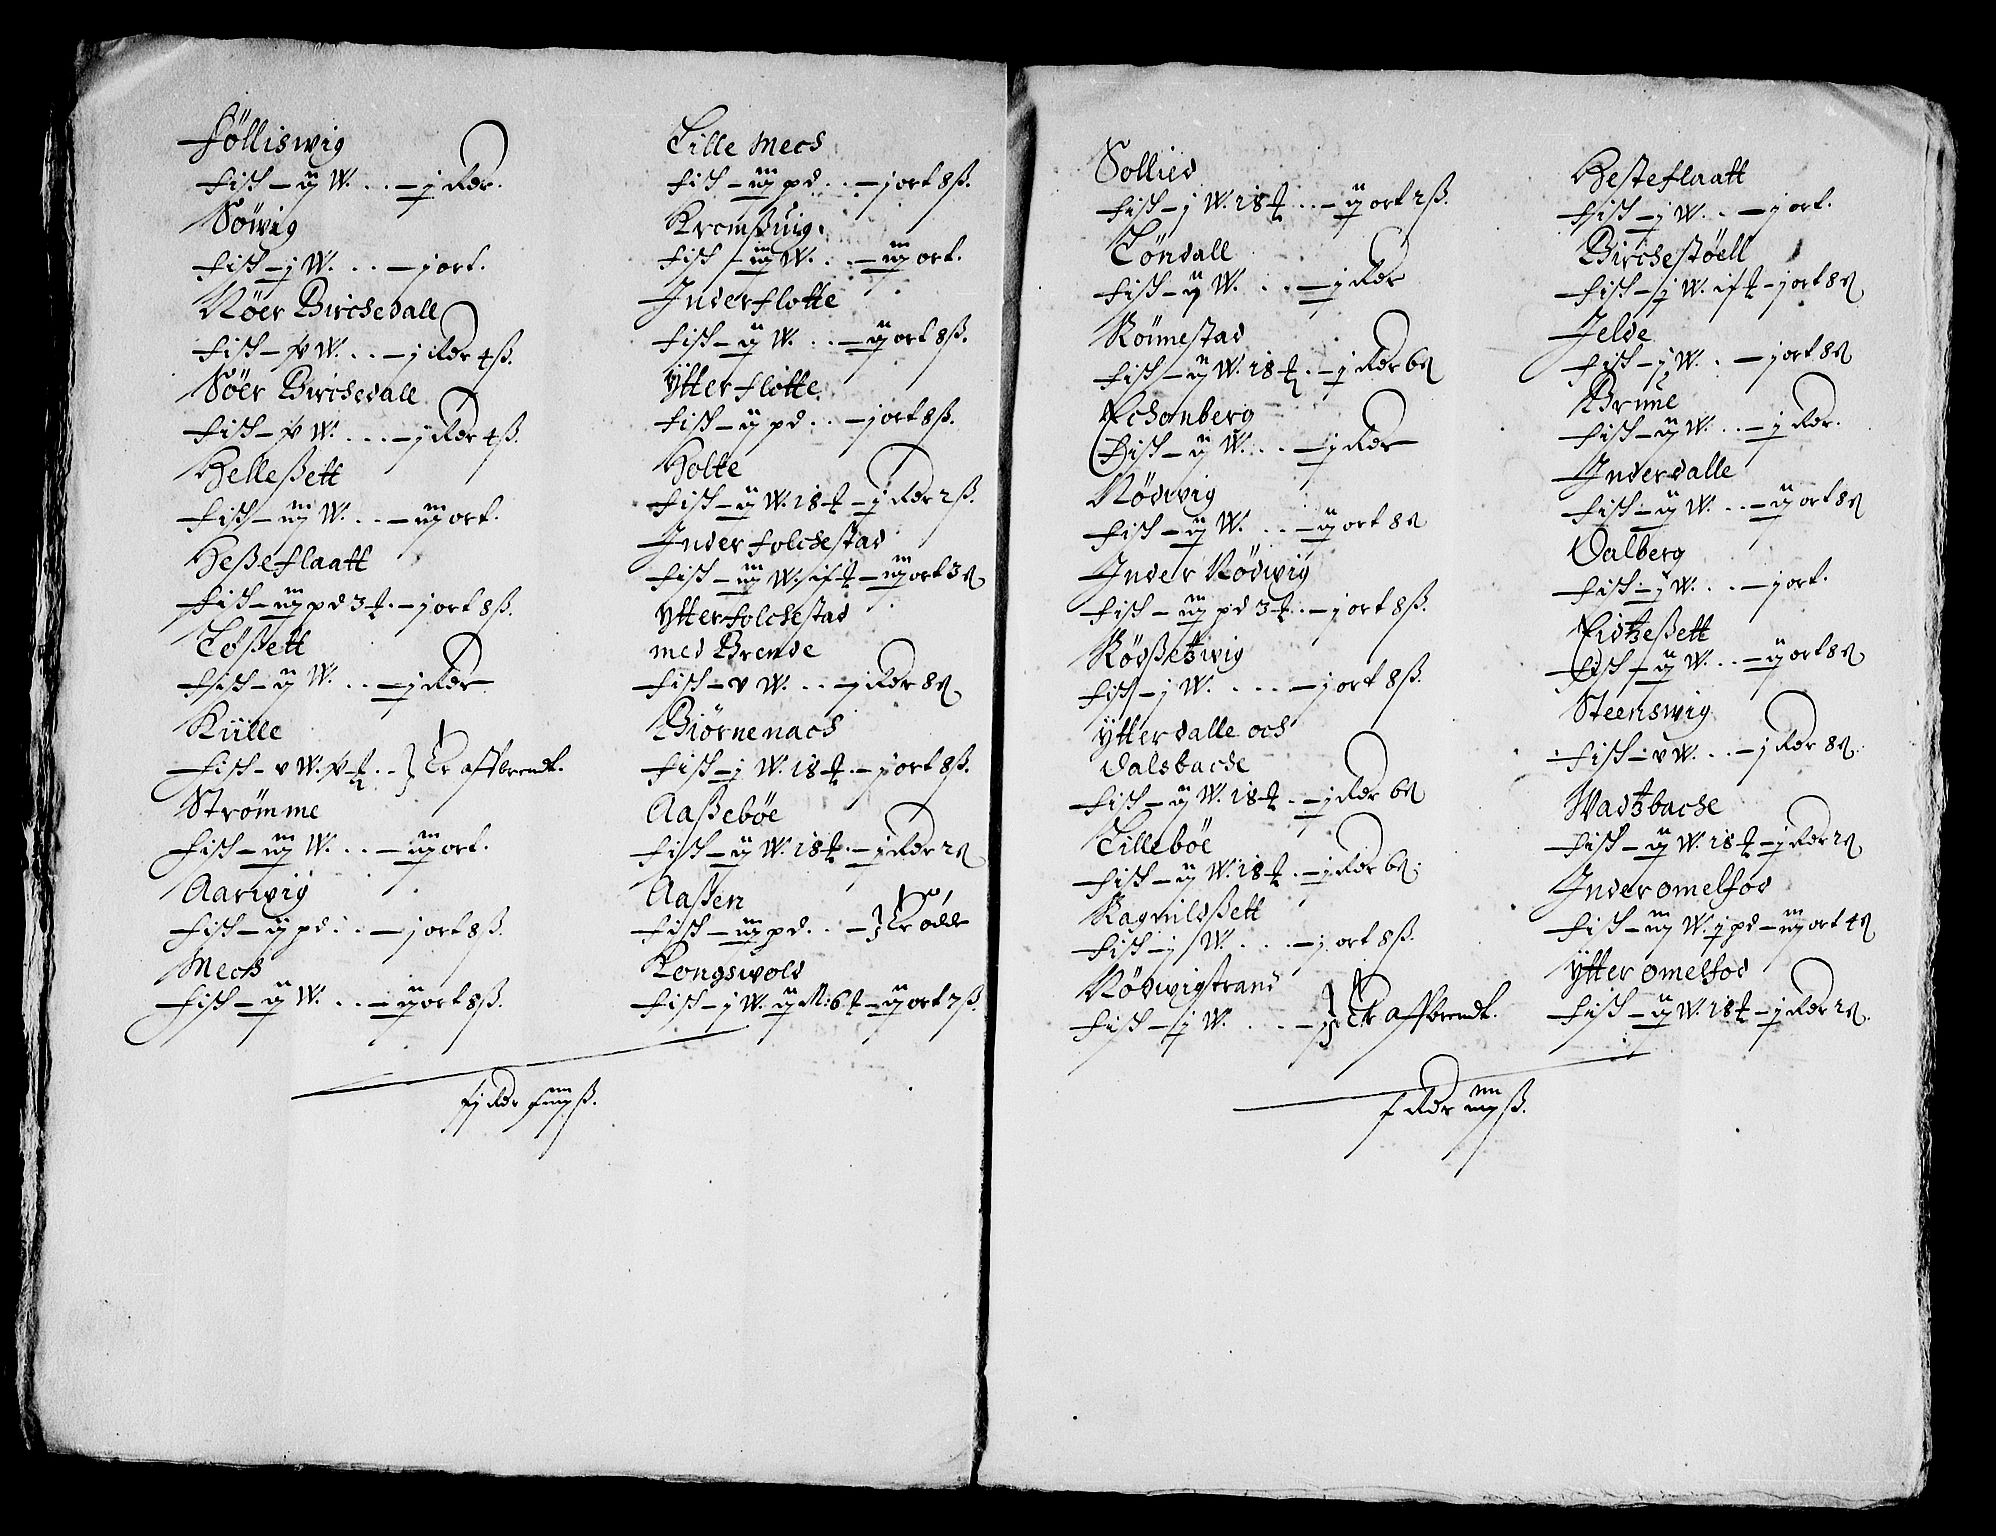 Fölliswig
Fisk – ij W. . . – j Rdr.
Söwig
Fisk – j W. . . – j ort.
Nöer Birchedall
Fisk – iv W. . . – j Rdr 4 ß.
Söer Birchedall
Fisk – iv W. . . – j Rdr 4 ß.
Helleßett
Fisk – iij W. . . – iij ort.
Heßeflaatt
Fisk – iij pd 3 ℔. – j ort 8 ß.
Tößett
Fisk – ij W. . . – j Rdr
Külle
Fisk – v W. iv ℔ . . } Er affbrendt.
Strömme
Fisk – iij W. . . – iij ort.
Aarwig
Fisk – ij pd . . – j ort 8 ß.
Mech
Fisk – ij W. . . – ij ort 8 ß.
Lille Mech
Fisk – iij pd . . – j ort 8 ß.
Kromßuig
Fisk – iij W. . . – iij ort.
Inderflotte
Fisk – ij W. . . – ij ort 8 ß.
Ytterflotte
Fisk – ij pd . . – j ort 8 ß.
Holte
Fisk – ij W. 18 ℔ – j Rdr 2 ß.
Inderfolchestad
Fisk – iij W. 1f ℔ – iij ort 3 ß
Ytterfolchestad
med Brende
Fisk – v W. . . – j Rdr 8 ß
Biörnenach
Fisk – j W. 18 ℔. – j ort 8 ß.
Aaßeböe
Fisk – ij W. 18 ℔. – j Rdr 2 ß
Aaßen
Fisk – iij pd . . – } Er öde
Kongswold
Fisk – j W. ij M: 6 ℔ – ij ort 7 ß.
fj Rdr fiiij ß.
Sollied
Fisk – j W. 18 ℔ . . – ij ort 2 ß.
Töndall
Fisk – ij W. . . – j Rdr
Römestad
Fisk – ij W. 18 ℔. – j Rdr 6 ß
Echonberg
Fisk – ij W. . . – j Rdr
Nödwig
Fisk – ij W. . . – ij ort 8 ß
Inder Nödwig
Fisk – iij pd 3 ℔. . – j ort 8 ß.
Rödßetzwig
Fisk – j W. . . . – j ort 8 ß.
Ytterdalle och
Dalsbache
Fisk – ij W. 18 ℔. – j Rdr 6 ß
Lilleböe
Fisk – ij W. 18 ℔. – j Rdr 6 ß.
Ragnildßett
Fisk – j W. . . . – j ort 8 ß.
Nödwigstrand
Fisk – j W. . . . – } Er affbrendt.
f Rdr iiij ß.
Hesteflaatt
Fisk – j W. . . – j ort.
Birchestöell
Fisk – j W. 1f ℔ – j ort 8 ß
Jelde
Fisk – j W. . – j ort 8 ß
Brune
Fisk – ij W. . . – j Rdr.
Inderdalle
Fisk – ij W. . . – ij ort 8 ß
Dalberg
Fisk – j W. . . – j ort.
Eidtzeßett
Fisk – ij W. . . – ij ort 8 ß
Steenswig
Fisk – v W. . . – j Rdr 8 ß.
Wadtzbache
Fisk – ij W. 18 ℔ – j Rdr 2 ß
Inder omelfod
Fisk – iij W. j pd – iij ort 4 ß
Ytter omelfod
Fisk – ij W. 18 ℔ – j Rdr 2 ß.